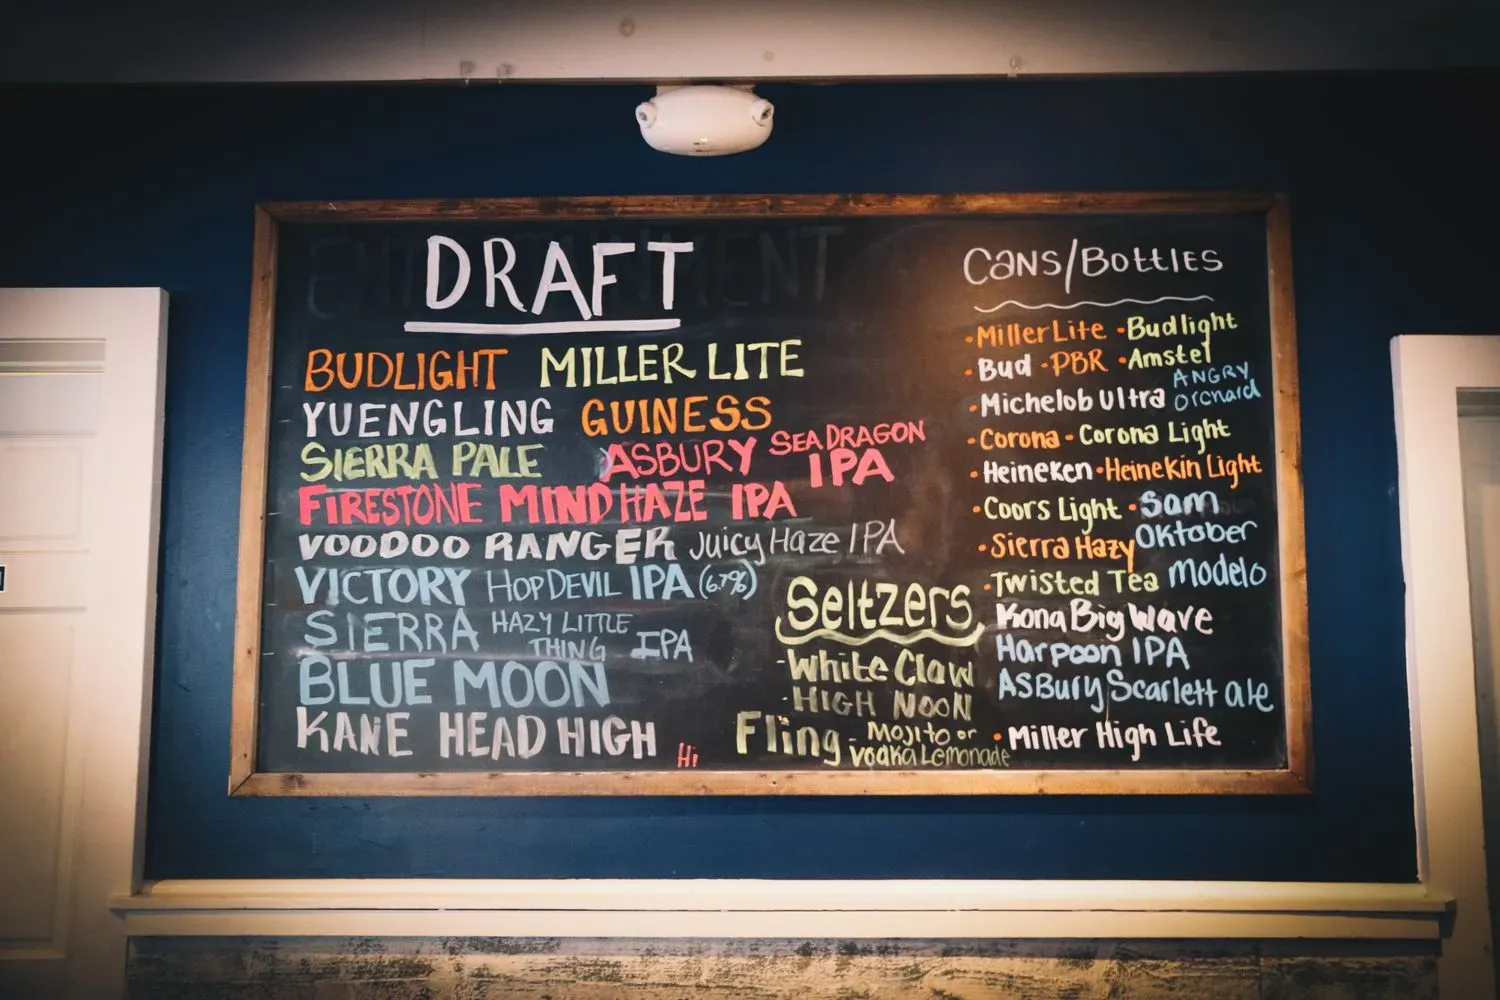 DRAFT
BUDLIGHT MILLER LITE
YUENGLING GUINESS
SIERRA PALE ASBURY SEA DRAGON IPA
FIRESTONE MIND HAZE IPA
VOODOO RANGER Juicy Haze IPA
VICTORY HOP DEVIL IPA (6.7%)
SIERRA HAZY LITTLE THING IPA
BLUE MOON
KANE HEAD HIGH
Hi
Seltzers
-White Claw
-HIGH NOON
Fling - Mojito or
vodka Lemonade
Cans/Bottles
•Miller Lite •Budlight
•Bud •PBR •Amstel
•Michelob Ultra ANGRY Orchard
•Corona •Corona Light
•Heineken •Heinekin Light
•Coors Light •Sam Oktober
•Sierra Hazy
•Twisted Tea Modelo
Kona Big Wave
Harpoon IPA
ASBury Scarlett ale
•Miller High Life